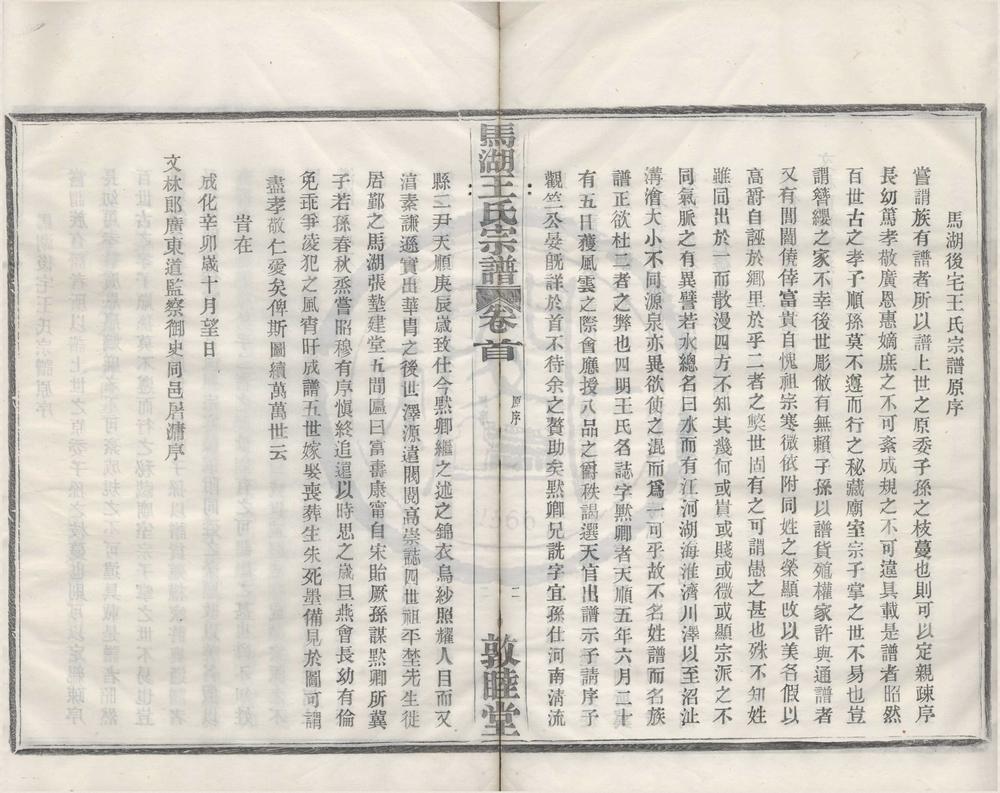 馬湖後宅王氏宗譜原序
嘗謂族有譜者所以譜上世之原委子孫之枝蔓也則可以定親疎序
長幼篤孝敬廣恩惠嫡庶之不可紊成規之不可違具載是譜者昭然
百世古之孝子順孫莫不遵而行之秘藏廟室宗子掌之世不易也豈
謂簪纓之家不幸後世彫敝有無賴子孫以譜貨殖權家許與通譜者
又有閭閻僥倖富貴自愧祖宗寒微依附同姓之榮顯改以美名假以
高爵自誣於鄉里於乎二者之弊世固有之可謂愚之甚也殊不知姓
雖同出於一而散漫四方不知其幾何或貴或賤或微或顯宗派之不
同氣脈之有異譬若水總名曰水而有江河湖海淮濟川澤以至沼沚
溝澮大小不同源泉亦異欲使之混而爲一可乎故不名姓譜而名族
譜正欲杜二者之弊也四明王氏名誌字默卿者天順五年六月二十
有五日獲風雲之際會應授八品之爵秩謁選天官出譜示予請序予
觀竺公晏旣詳於首不待余之贅助矣默卿兄詵字宜孫仕河南清流
馬湖王氏宗譜
卷首
原序
二
敦睦堂
縣二尹天順庚辰歲致仕今默卿繼之述之錦衣烏紗照耀人目而又
涫秦謙遜實出華冑之後世澤源遠閥閱高崇誌四世祖平埜先生徙
居鄞之馬湖張墊建堂五間匾曰富壽康甯自宋貽厥孫謀默卿所冀
子若孫春秋烝嘗昭穆有序愼終追遠以時思之歲旦燕會長幼有倫
免乖爭凌犯之風宵旰成譜五世嫁娶喪葬生朱死墨備見於圖可謂
盡孝敬仁愛矣俾斯圖續萬萬世云
旹在
成化辛卯歲十月望日
文林郎廣東道監察御史同邑屠滽序